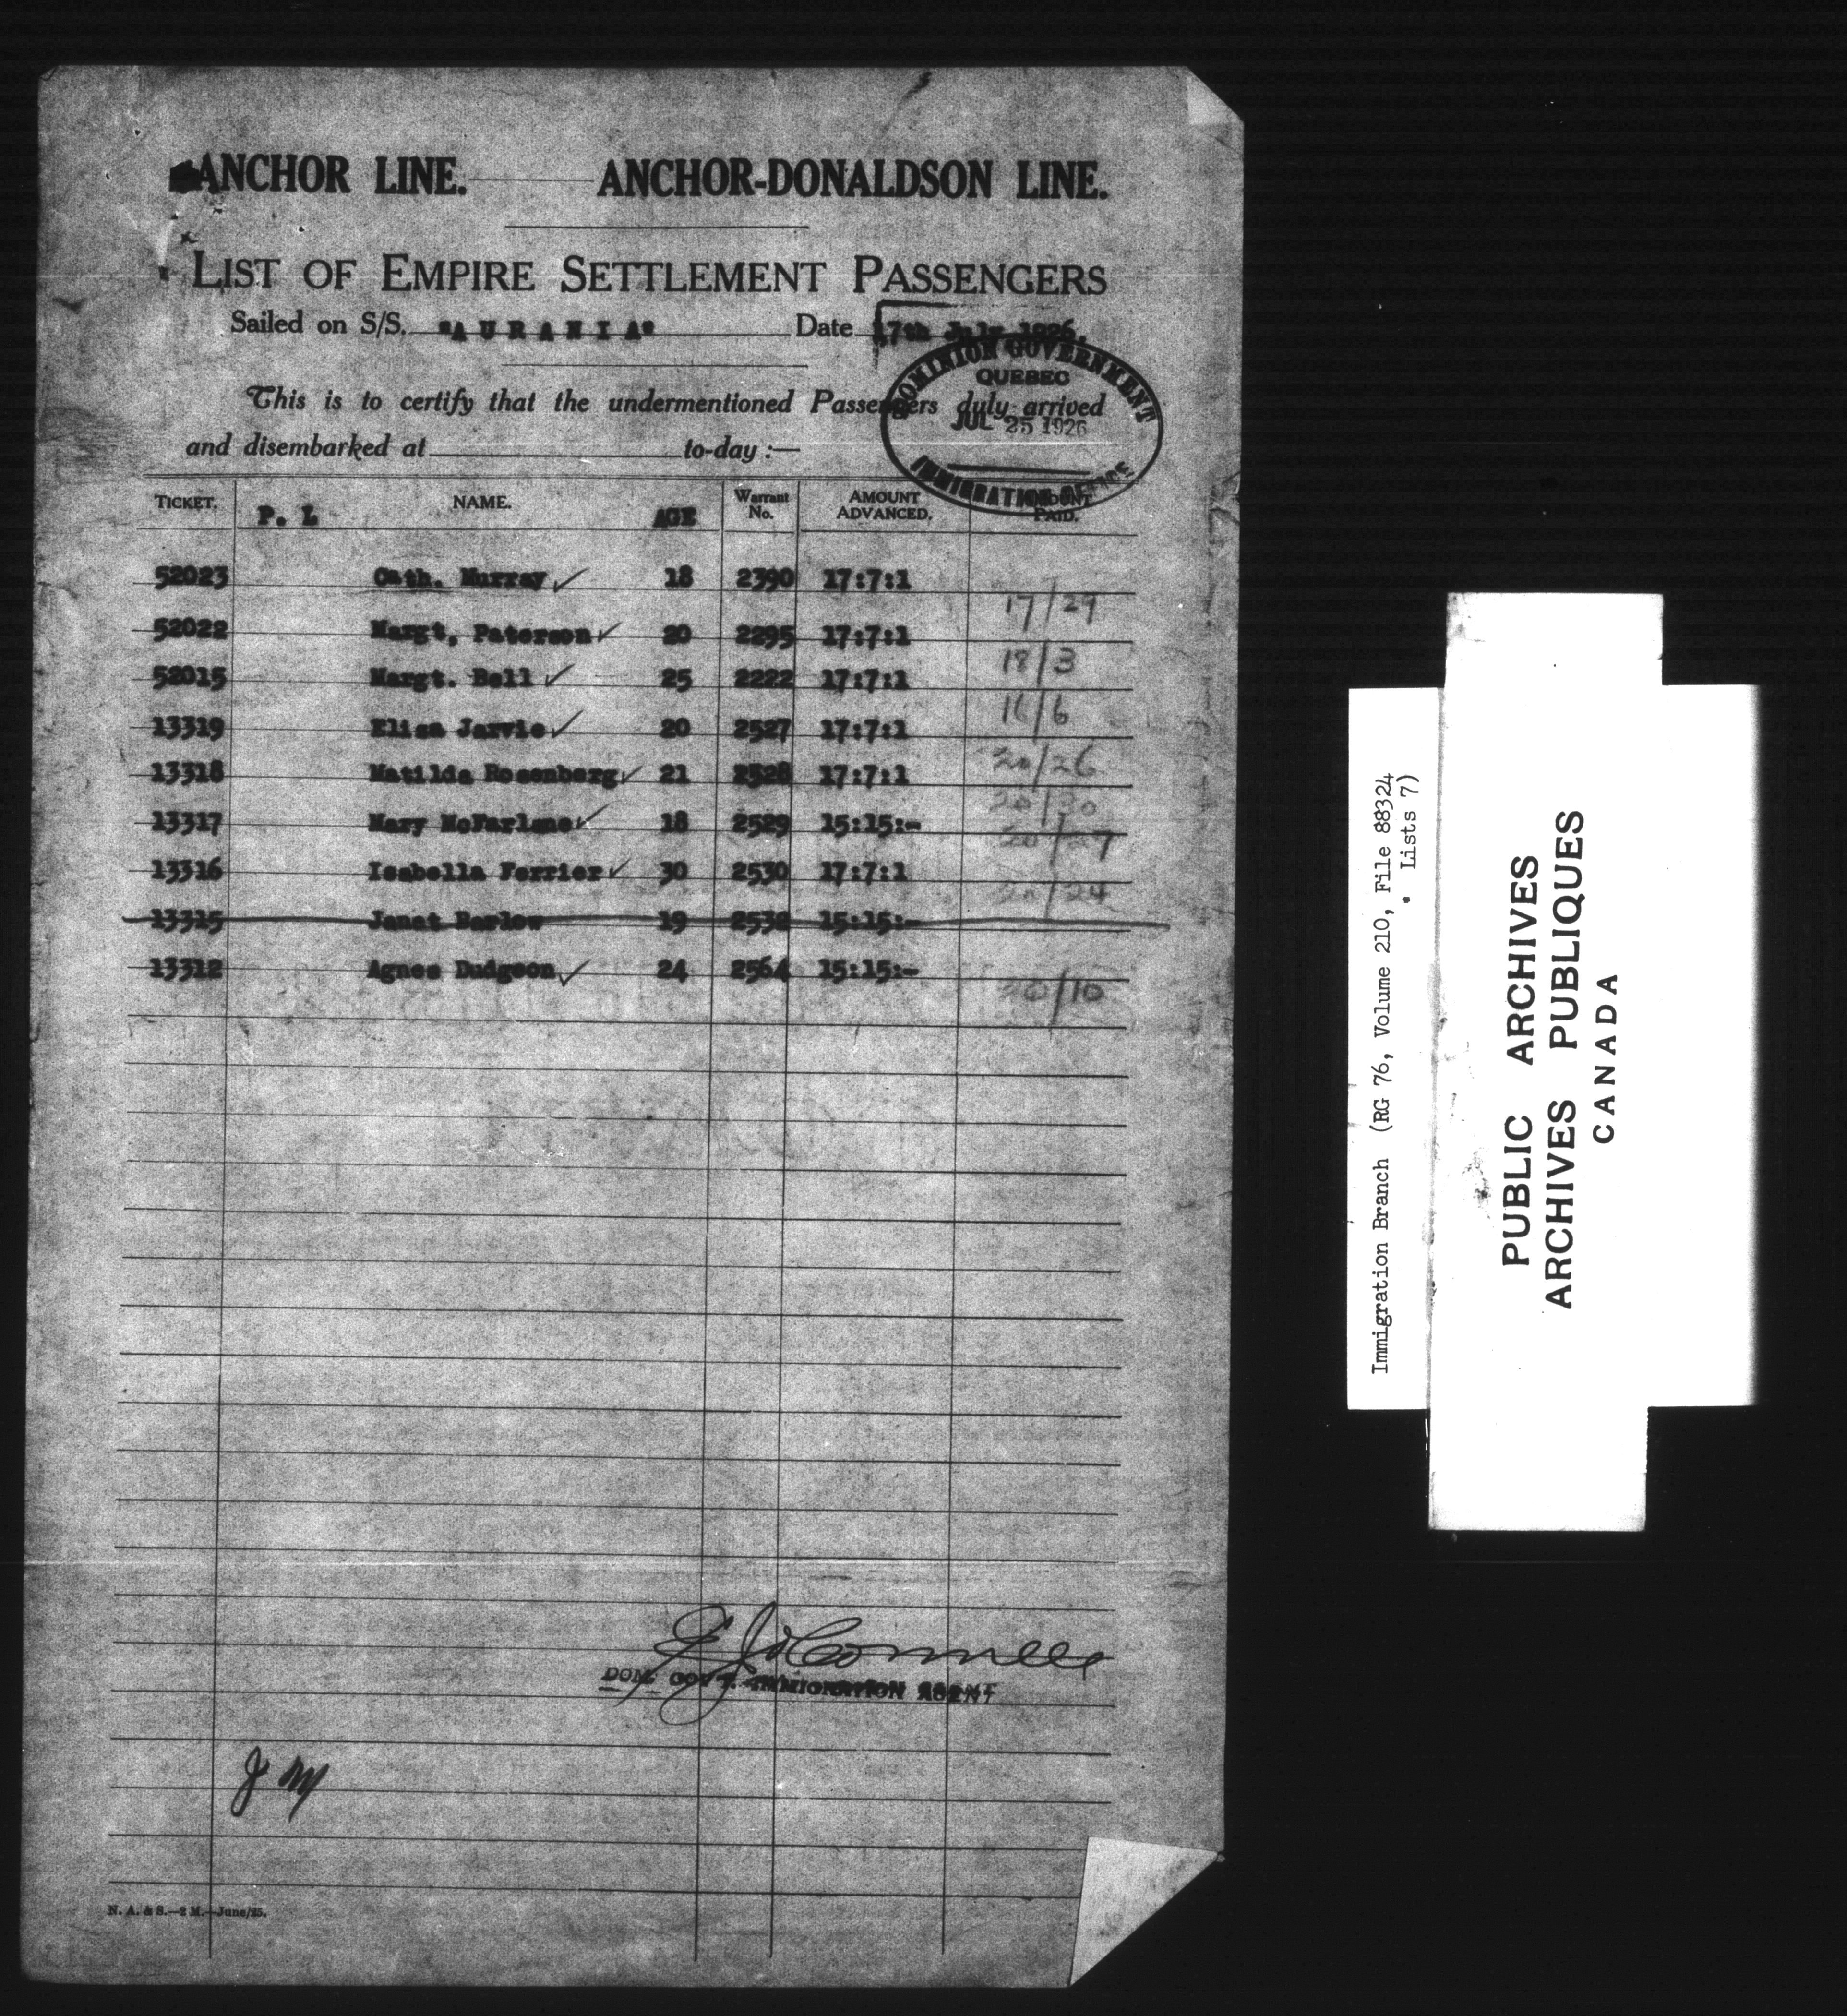 ANCHOR LINE. ANCHOR-DONALDSON LINE.
LIST OF EMPIRE SETTLEMENT PASSENGERS
Sailed on S/S. "AURANIA" Date 17th July 1926.
This is to certify that the undermentioned Passengers duly arrived
and disembarked at to-day :—
DOMINION GOVERNMENT
QUEBEC
JUL 25 1926
IMMIGRATION OFFICE
TICKET. P. L NAME. AGE Warrant No. AMOUNT ADVANCED. AMOUNT PAID.
52023 Cath. Murray ✓ 18 2390 17:7:1 17/29
52022 Margt. Paterson ✓ 20 2295 17:7:1 18/3
52015 Margt. Bell ✓ 25 2222 17:7:1 16/6
13319 Eliza Jarvie ✓ 20 2527 17:7:1 20/26
13318 Matilda Rosenberg ✓ 21 2528 17:7:1 20/30
13317 Mary McFarlane ✓ 18 2529 15:15:- 20/27
13316 Isabella Ferrier ✓ 30 2530 17:7:1 20/24
13315 Janet Barlow 19 2532 15:15:-
13312 Agnes Dudgeon ✓ 24 2564 15:15:- 20/10
DOM. GOV'T. IMMIGRATION AGENT
J M
N. A. & S.—2 M.—June/25.
Immigration Branch (RG 76, Volume 210, File 88324
Lists 7)
PUBLIC ARCHIVES
ARCHIVES PUBLIQUES
CANADA